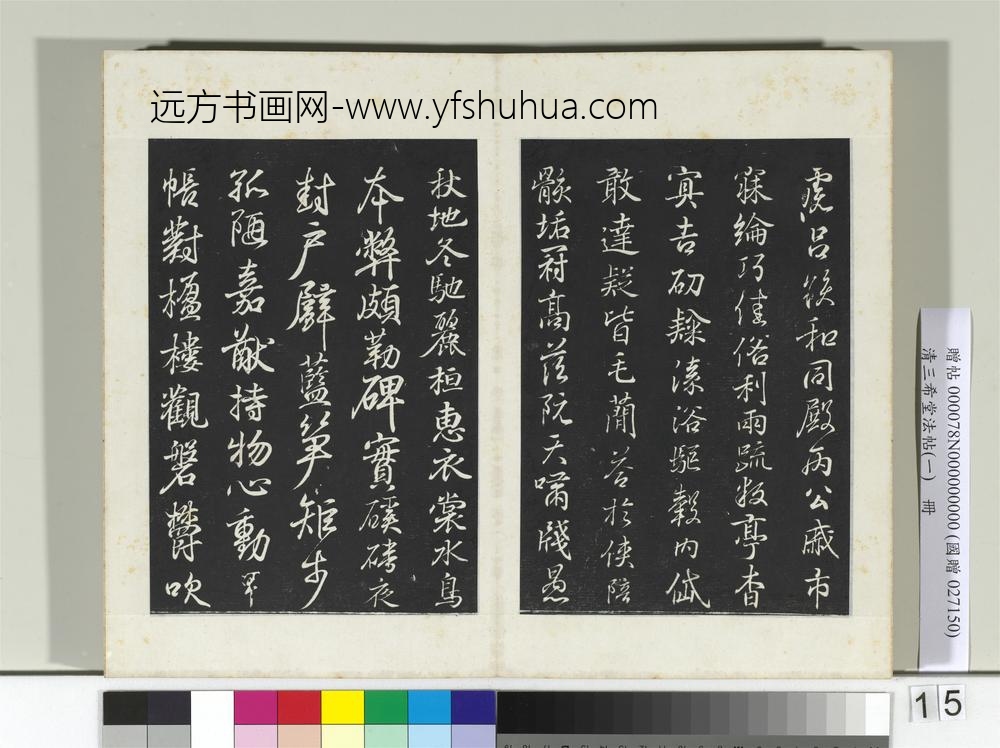 远方书画网-www.yfshuhua.com
霓吕欲和同殿丙公戚市
寐綸巧佳俗利雨疏放亭杳
寘吉礽隸溙浴驅轂內岱
敢達疑皆毛蕑荅於俠陪
骸垢冠高茲阮天嘯牋愚
秋地冬馳麗桓惠衣裳水鳥
本弊頗勒碑實磎磚夜
封户臂藍筍矩步
孤陋嘉猷持物心動畢
帳對楹樓觀磐欝吹
贈帖 000078N000000000 (國贈 027150)
清三希堂法帖(一) 冊
15